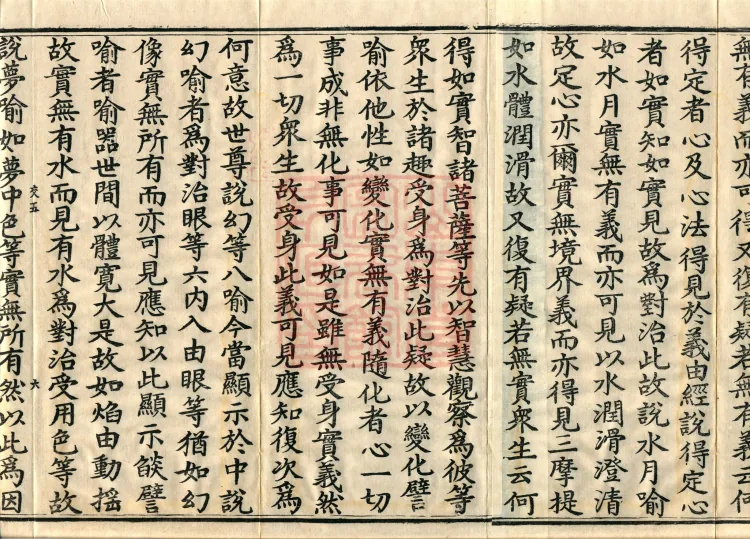 無有義而亦可得又復有疑若無有義云何
得定者心及心法得見於義由經說得定心
者如實知如實見故為對治此故說水月喻
如水月實無有義而亦可見以水潤滑澄清
故定心亦爾實無境界義而亦得見三摩提
如水體潤滑故又復有疑若無實衆生云何
得如實智諸菩薩等先以智慧觀察為彼等
衆生於諸趣受身為對治此疑故以變化譬
喻依他性如變化實無有義隨化者心一切
事成非無化事可見如是雖無受身實義然
為一切衆生故受身此義可見應知復次為
何意故世尊說幻等八喻今當顯示於中說
幻喻者為對治眼等六內入由眼等猶如幻
像實無所有而亦可見應知以此顯示燄譬
喻者喻器世間以體寬大是故如焰由動搖
故實無有水而見有水為對治受用色等故
說夢喻如夢中色等實無所有然以此為因
六